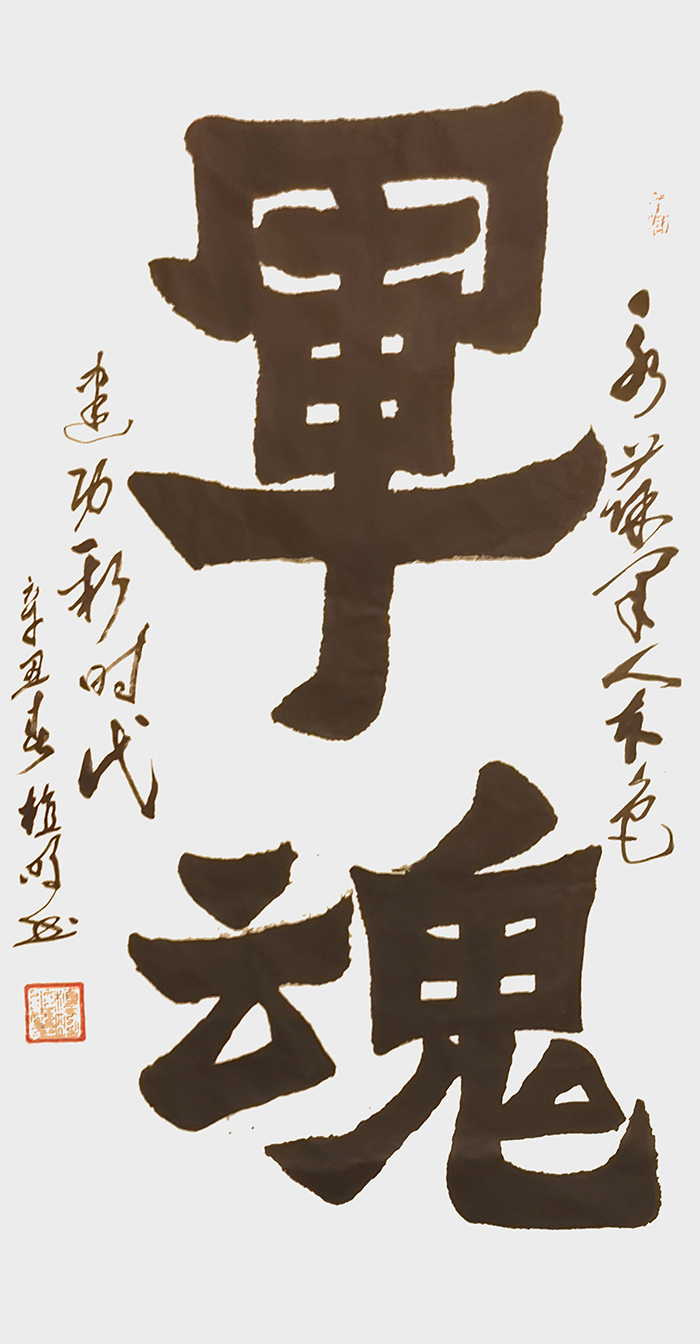 永葆军人本色
軍魂
建功新时代
辛丑春植明书